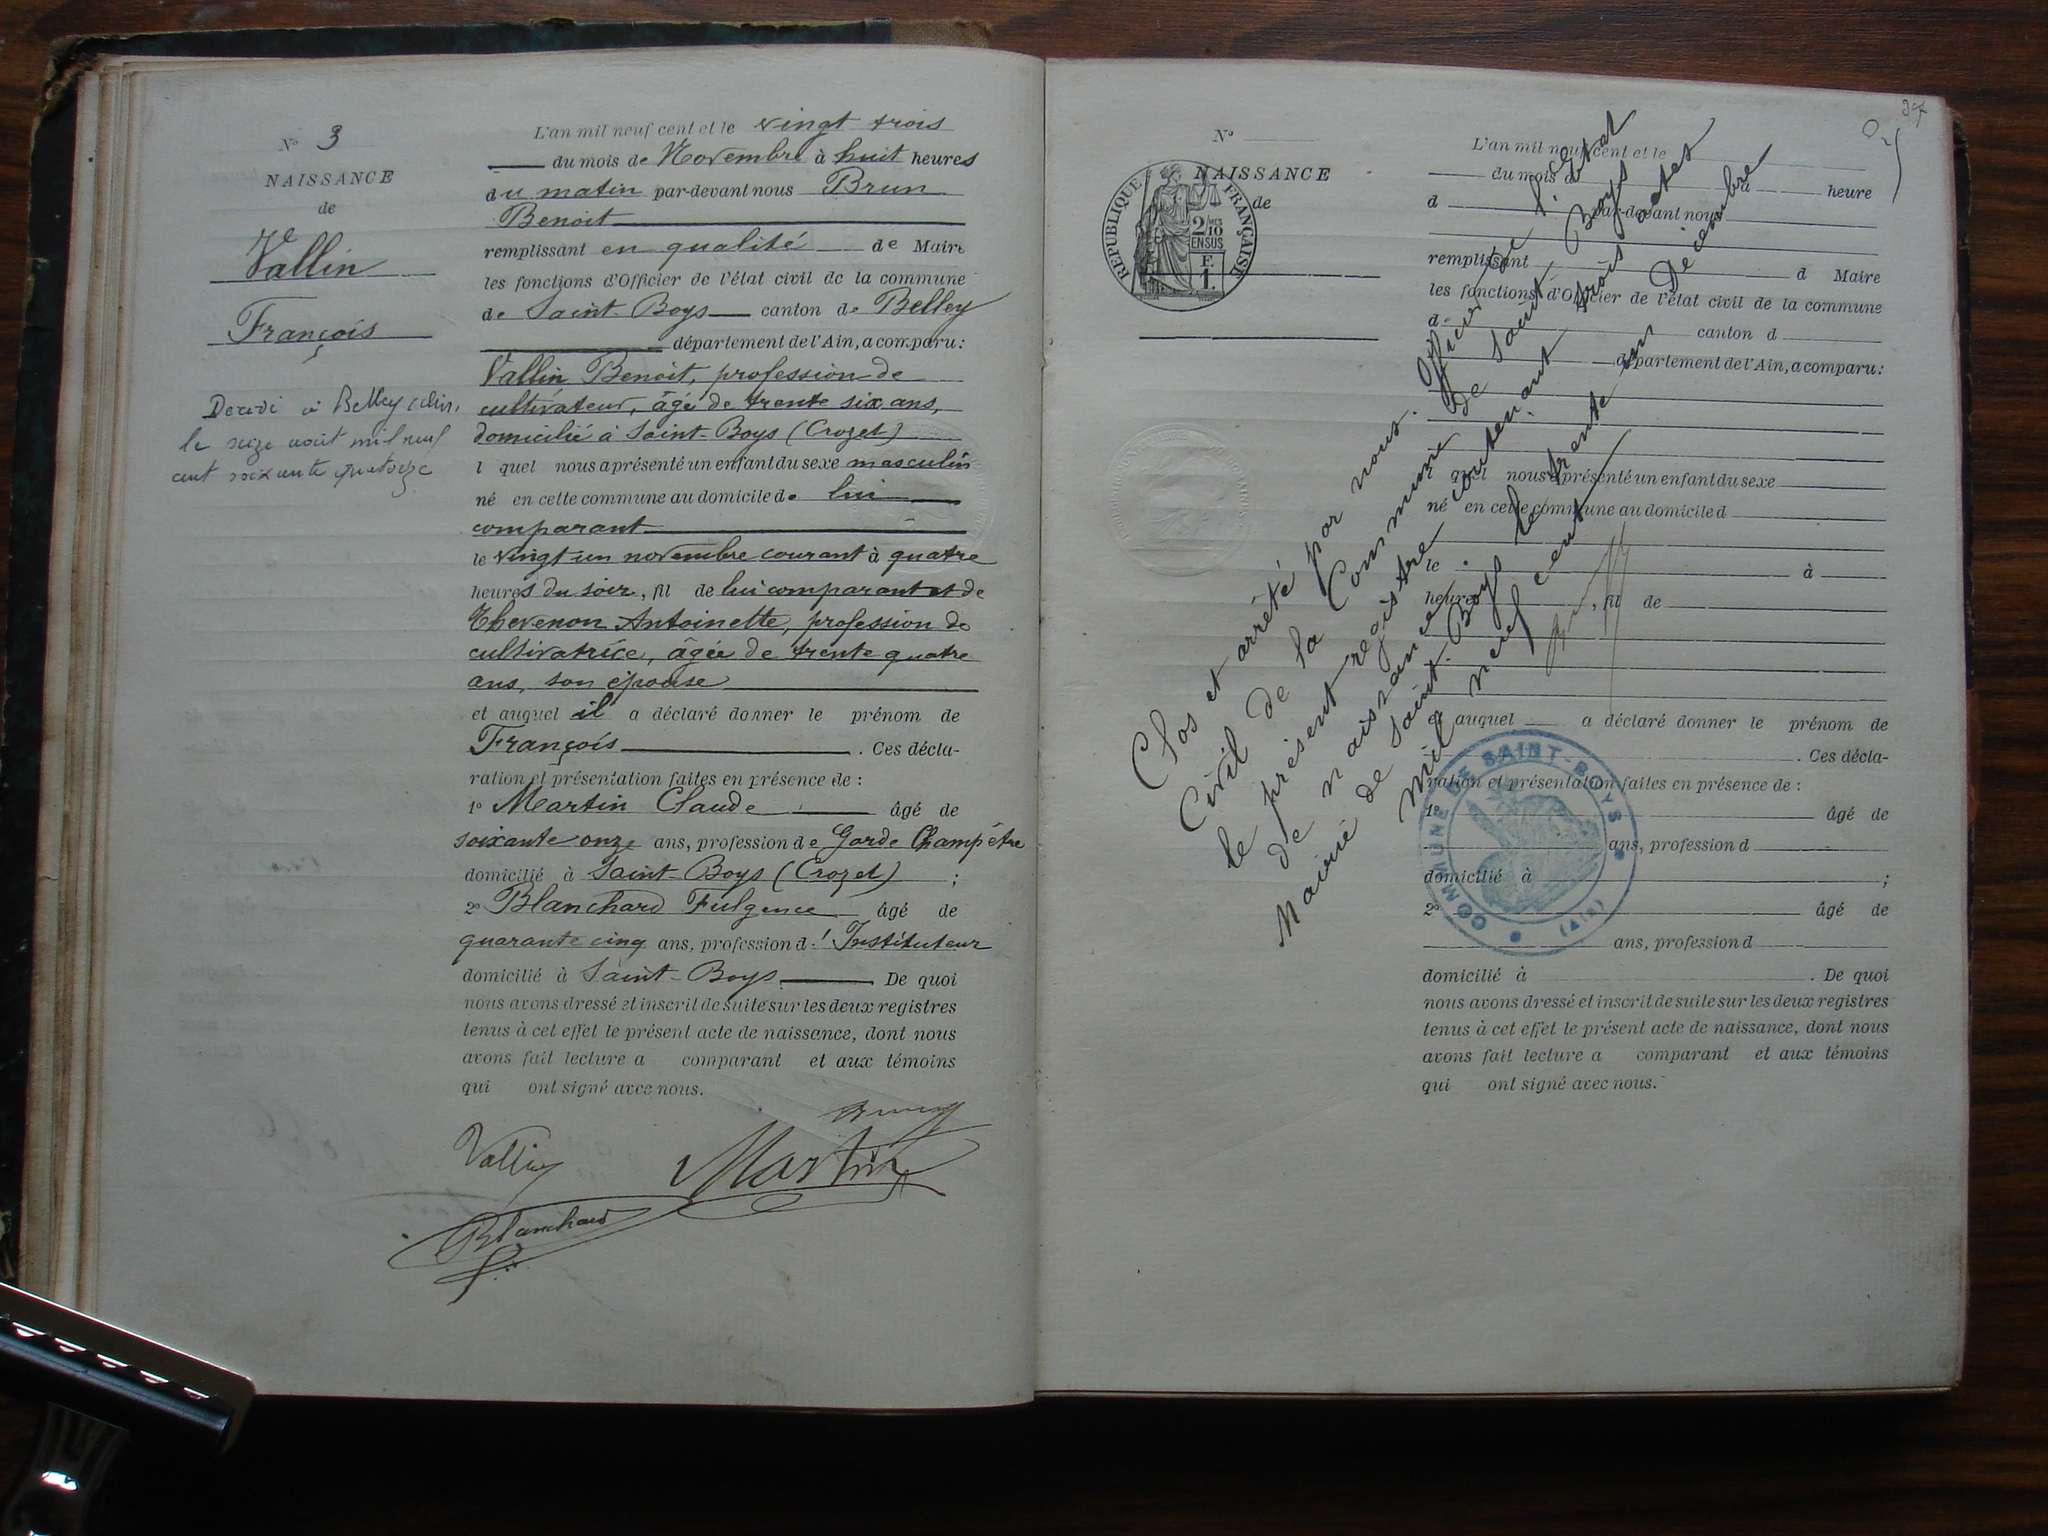 N° 3
NAISSANCE
de
Vallin
François
Décédé à Belley (Ain)
le seize août mil neuf
cent soixante quatorze
L'an mil neuf cent et le vingt trois
du mois de Novembre à huit heures
du matin par-devant nous Brun
Benoit
remplissant en qualité de Maire
les fonctions d'Officier de l'état civil de la commune
de Saint-Boys canton de Belley
département de l'Ain, a comparu:
Vallin Benoit, profession de
cultivateur, âgé de trente six ans,
domicilié à Saint-Boys (Crozet)
l quel nous a présenté un enfant du sexe masculin
né en cette commune au domicile de lui
comparant
le vingt un novembre courant à quatre
heures du soir, fil de lui comparant et de
Thevenon Antoinette, profession de
cultivatrice, âgée de trente quatre
ans, son épouse
et auquel il a déclaré donner le prénom de
François. Ces décla-
ration et présentation faites en présence de :
1° Martin Claude âgé de
soixante onze ans, profession de Garde Champêtre
domicilié à Saint-Boys (Crozet) ;
2° Blanchard Fulgence âgé de
quarante cinq ans, profession d'Instituteur
domicilié à Saint-Boys. De quoi
nous avons dressé et inscrit de suite sur les deux registres
tenus à cet effet le présent acte de naissance, dont nous
avons fait lecture a comparant et aux témoins
qui ont signé avec nous.
Brun
Vallin Martin
Blanchard
37
N°
NAISSANCE
de
RÉPUBLIQUE FRANÇAISE
2/10
EN SUS
F.
1.
L'an mil neuf cent et le
du mois d à heure
d par-devant nous
remplissant d Maire
les fonctions d'Officier de l'état civil de la commune
d canton d
département de l'Ain, a comparu:
l quel nous a présenté un enfant du sexe
né en cette commune au domicile d
le à
heures , fil de
et auquel a déclaré donner le prénom de
. Ces décla-
ration et présentation faites en présence de :
1° âgé de
ans, profession d
domicilié à ;
2° âgé de
ans, profession d
domicilié à . De quoi
nous avons dressé et inscrit de suite sur les deux registres
tenus à cet effet le présent acte de naissance, dont nous
avons fait lecture a comparant et aux témoins
qui ont signé avec nous.
Clos et arrêté par nous. Officier de l'état
Civil de la Commune de Saint-Boys
le présent registre contenant trois actes
de naissance.
Mairie de Saint-Boys le trente un Décembre
mil neuf cent
COMMUNE DE SAINT-BOYS
(AIN)